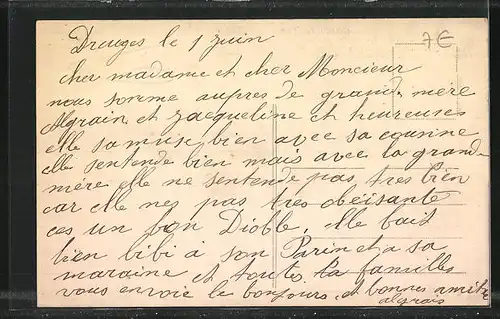 Drouges le 1 juin
7€
cher madame et cher Moncieur
nous somme aupres de grand. mère
Algrain et Jacqueline et heureuses
elle samuse bien avec sa cousinne
elle sentende bien mais avec la grand-
mère elle ne sentende pas tres bien
car elle nes pas tres obeisante
ces un bon Diable. elle fait
bien bibi à son Parin et a sa
maraine et toutes la familles
vous envoie le bonjours et bonnes amitié
algrain